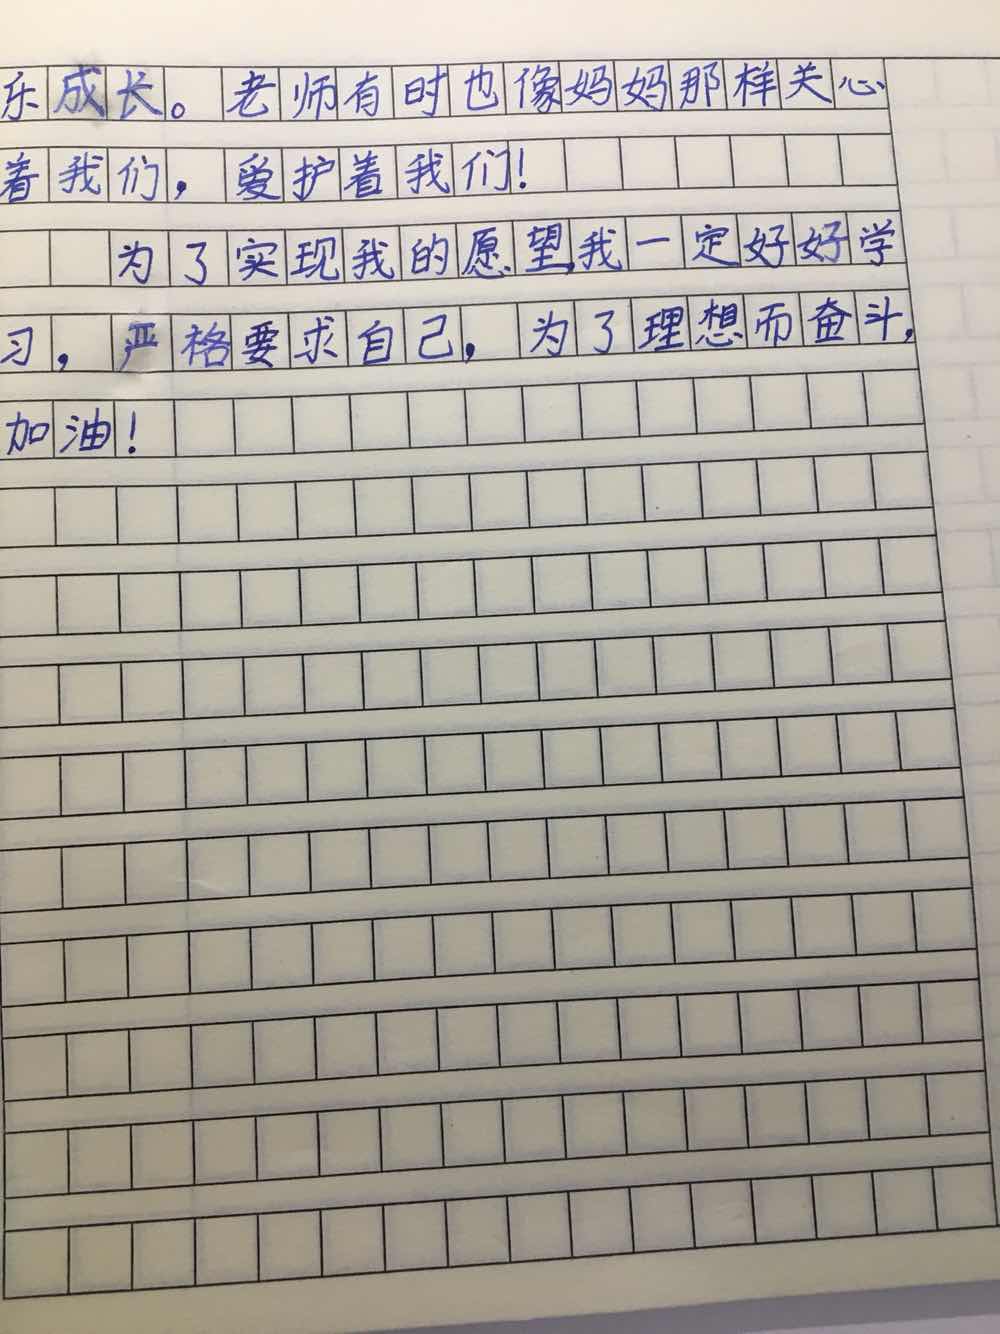 乐成长。老师有时也像妈妈那样关心
着我们，爱护着我们！
为了实现我的愿望，我一定好好学
习，严格要求自己，为了理想而奋斗，
加油！